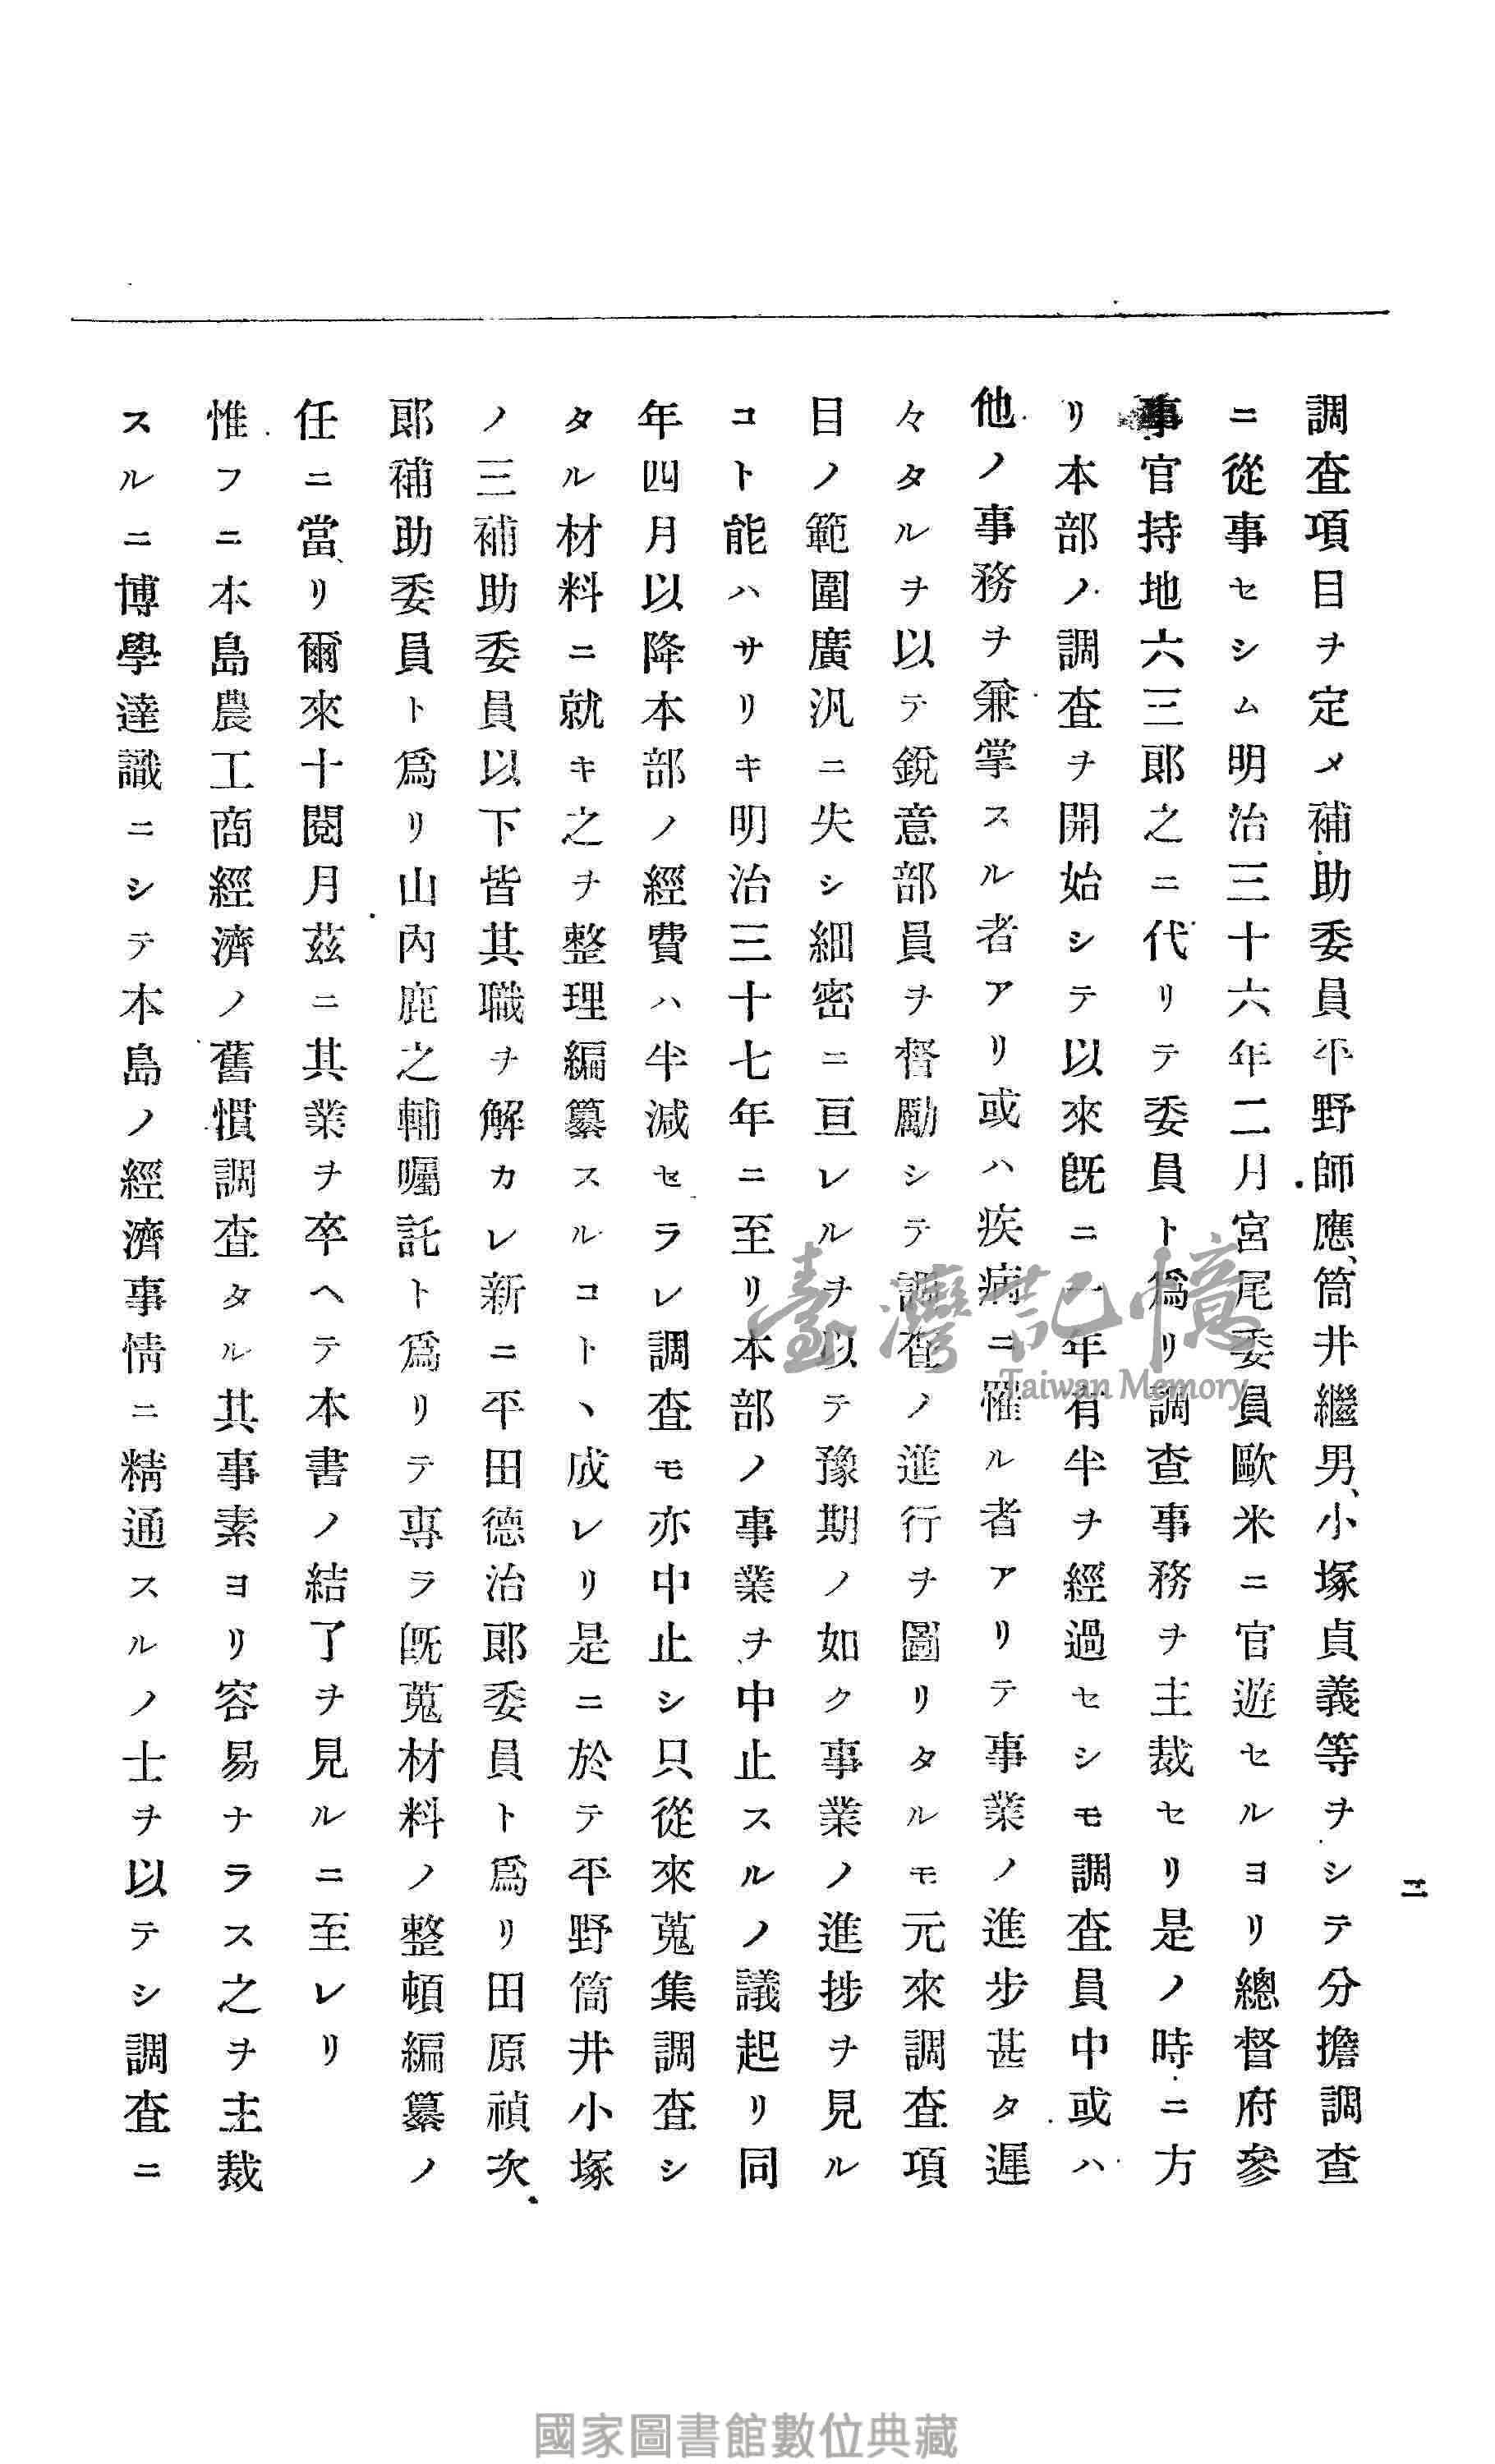 二
調査項目ヲ定メ補助委員平野師應、筒井繼男、小塚貞義等ヲシテ分擔調査
ニ從事セシム明治三十六年二月宮尾委員歐米ニ官遊セルヨリ總督府參
事官持地六三郎之ニ代リテ委員ト爲リ調査事務ヲ主裁セリ是ノ時ニ方
リ本部ノ調査ヲ開始シテ以來既ニ一年有半ヲ經過セシモ調査員中或ハ
他ノ事務ヲ兼掌スル者アリ或ハ疾病ニ罹ル者アリテ事業ノ進步甚タ遲
々タルヲ以テ銳意部員ヲ督勵シテ調査ノ進行ヲ圖リタルモ元來調査項
目ノ範圍廣汎ニ失シ細密ニ亘レルヲ以テ豫期ノ如ク事業ノ進捗ヲ見ル
コト能ハサリキ明治三十七年ニ至リ本部ノ事業ヲ中止スルノ議起リ同
年四月以降本部ノ經費ハ半減セラレ調査モ亦中止シ只從來蒐集調査シ
タル材料ニ就キ之ヲ整理編纂スルコトヽ成レリ是ニ於テ平野筒井小塚
ノ三補助委員以下皆其職ヲ解カレ新ニ平田德治郎委員ト爲リ田原禎次
郎補助委員ト爲リ山內鹿之輔囑託ト爲リテ專ラ既蒐材料ノ整頓編纂ノ
任ニ當リ爾來十閱月茲ニ其業ヲ卒ヘテ本書ノ結了ヲ見ルニ至レリ
惟フニ本島農工商經濟ノ舊慣調査タル其事素ヨリ容易ナラス之ヲ主裁
スルニ博學達識ニシテ本島ノ經濟事情ニ精通スルノ士ヲ以テシ調査ニ
臺灣記憶
Taiwan Memory
國家圖書館數位典藏